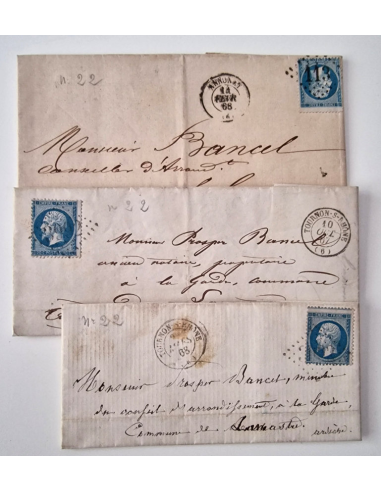 n: 22
ANNONAY
14
68
(6)
113
Monsieur Bancel
Conseiller d'Arrond.t
n 22
TOURNON-S-RHONE
10
(6)
Monsieur Prosper Bance
ancien notaire, propriétaire
à la Garde, commune
n: 22
TOURNON-S-RHONE
68
EMPIRE FRANC
Monsieur Prosper Bancel, membre
du conseil d'arrondissement, à la Garde,
Commune de Lamastre
ardèche